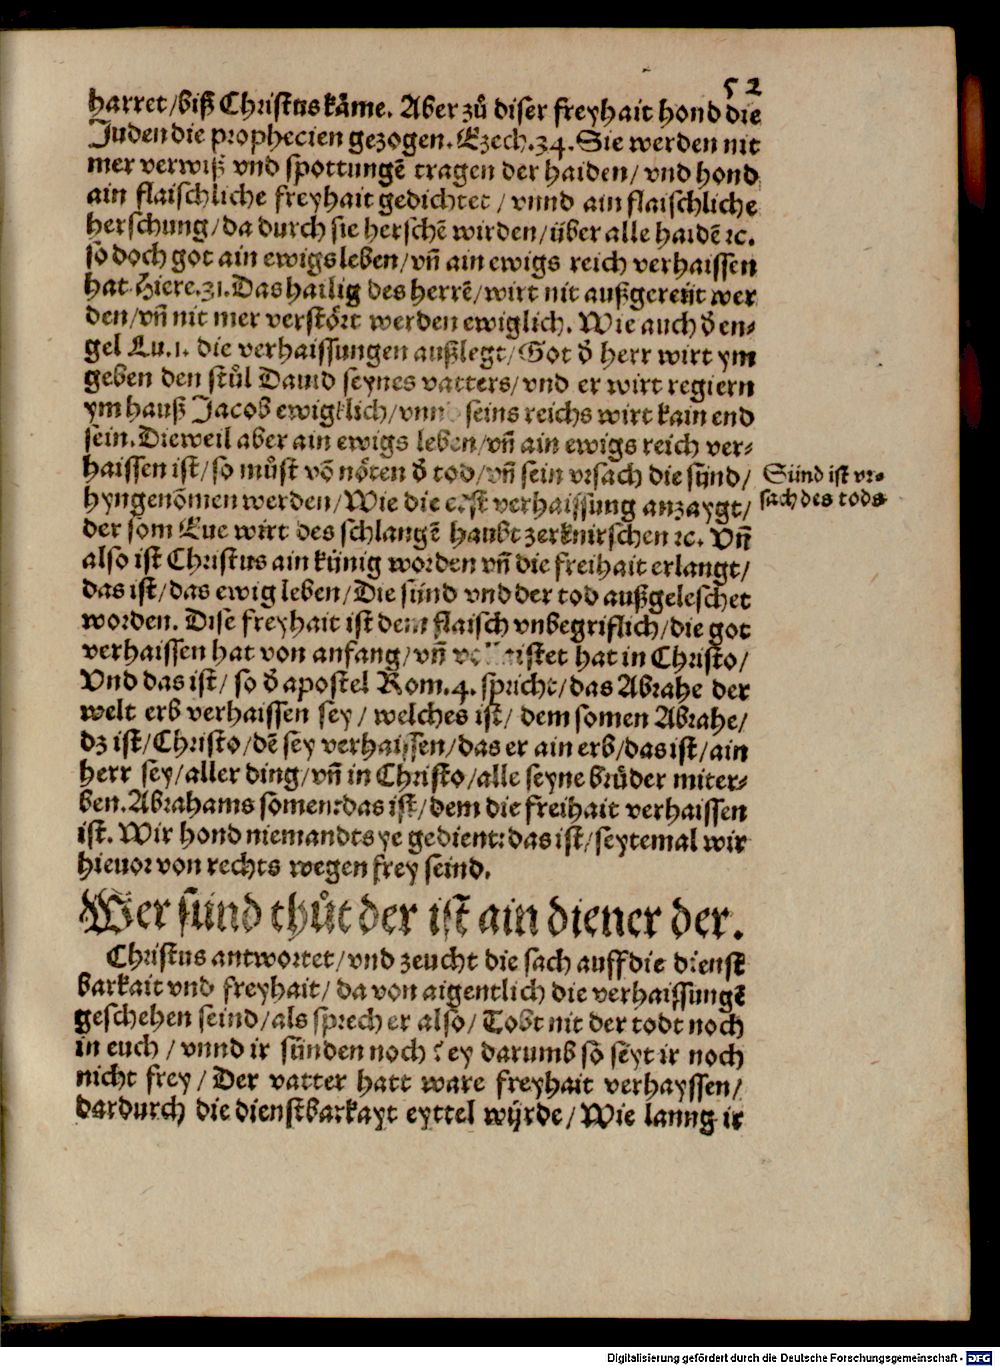 52
harret/biß Christus kåme. Aber zů diser freyhait hond die
Juden die prophecien gezogen. Ezech.34. Sie werden nit
mer verwiß vnd spottungẽ tragen der haiden/ vnd hond
ain flaischliche freyhait gedichtet / vnnd ain flaischliche
herschung/da durch sie herschẽ wirden/über alle haidẽ ⁊c.
so doch got ain ewigs leben/vñ ain ewigs reich verhaissen
hat Hiere.31. Das hailig des herrẽ/wirt nit außgereüt wer
den/vñ nit mer verstört werden ewiglich. Wie auch d̓ en⸗
gel Lu.1. die verhaissungen außlegt/Got d̓ herr wirt ym
geben den stůl Dauid seynes vatters/vnd er wirt regiern
ym hauß Jacob ewigklich/vnnd seins reichs wirt kain end
sein. Dieweil aber ain ewigs leben/vñ ain ewigs reich ver⸗
haissen ist/so můst võ nöten d̓ tod/vñ sein vrsach die sünd/
Sünd ist vr⸗
sach des tods
hyngenõmen werden/Wie die erst verhaissung anzaygt/
der som Eue wirt des schlangẽ haubt zerknirschen ⁊c. Vñ
also ist Christus ain künig worden vñ die freihait erlangt/
das ist/das ewig leben/Die sünd vnd der tod außgeleschet
worden. Dise freyhait ist dem flaisch vnbegriflich/die got
verhaissen hat von anfang/vñ hat in Christo/
Vnd das ist/ so d̓ apostel Rom.4. spricht/das Abrahe der
welt erb verhaissen sey/ welches ist/ dem somen Abrahe/
dz ist/Christo/dẽ sey verhaissen/das er ain erb/das ist/ain
herr sey/aller ding/vñ in Christo/alle seyne brůder miter⸗
ben. Abrahams somen:das ist/dem die freihait verhaissen
ist. Wir hond niemandts ye gedient:das ist/seytemal wir
hieuor von rechts wegen frey seind.
Wer sünd thůt der ist ain diener der.
Christus antwortet/vnd zeucht die sach auff die dienst
barkait vnd freyhait/ da von aigentlich die verhaissungẽ
geschehen seind/als sprech er also/ Tobt nit der todt noch
in euch / vnnd ir sünden noch ? ey darumb so seyt ir noch
nicht frey/ Der vatter hatt ware freyhait verhayssen/
dardurch die dienstbarkayt eyttel würde/Wie lanng ir
Digitalisierung gefördert durch die Deutsche Forschungsgemeinschaft - DFG